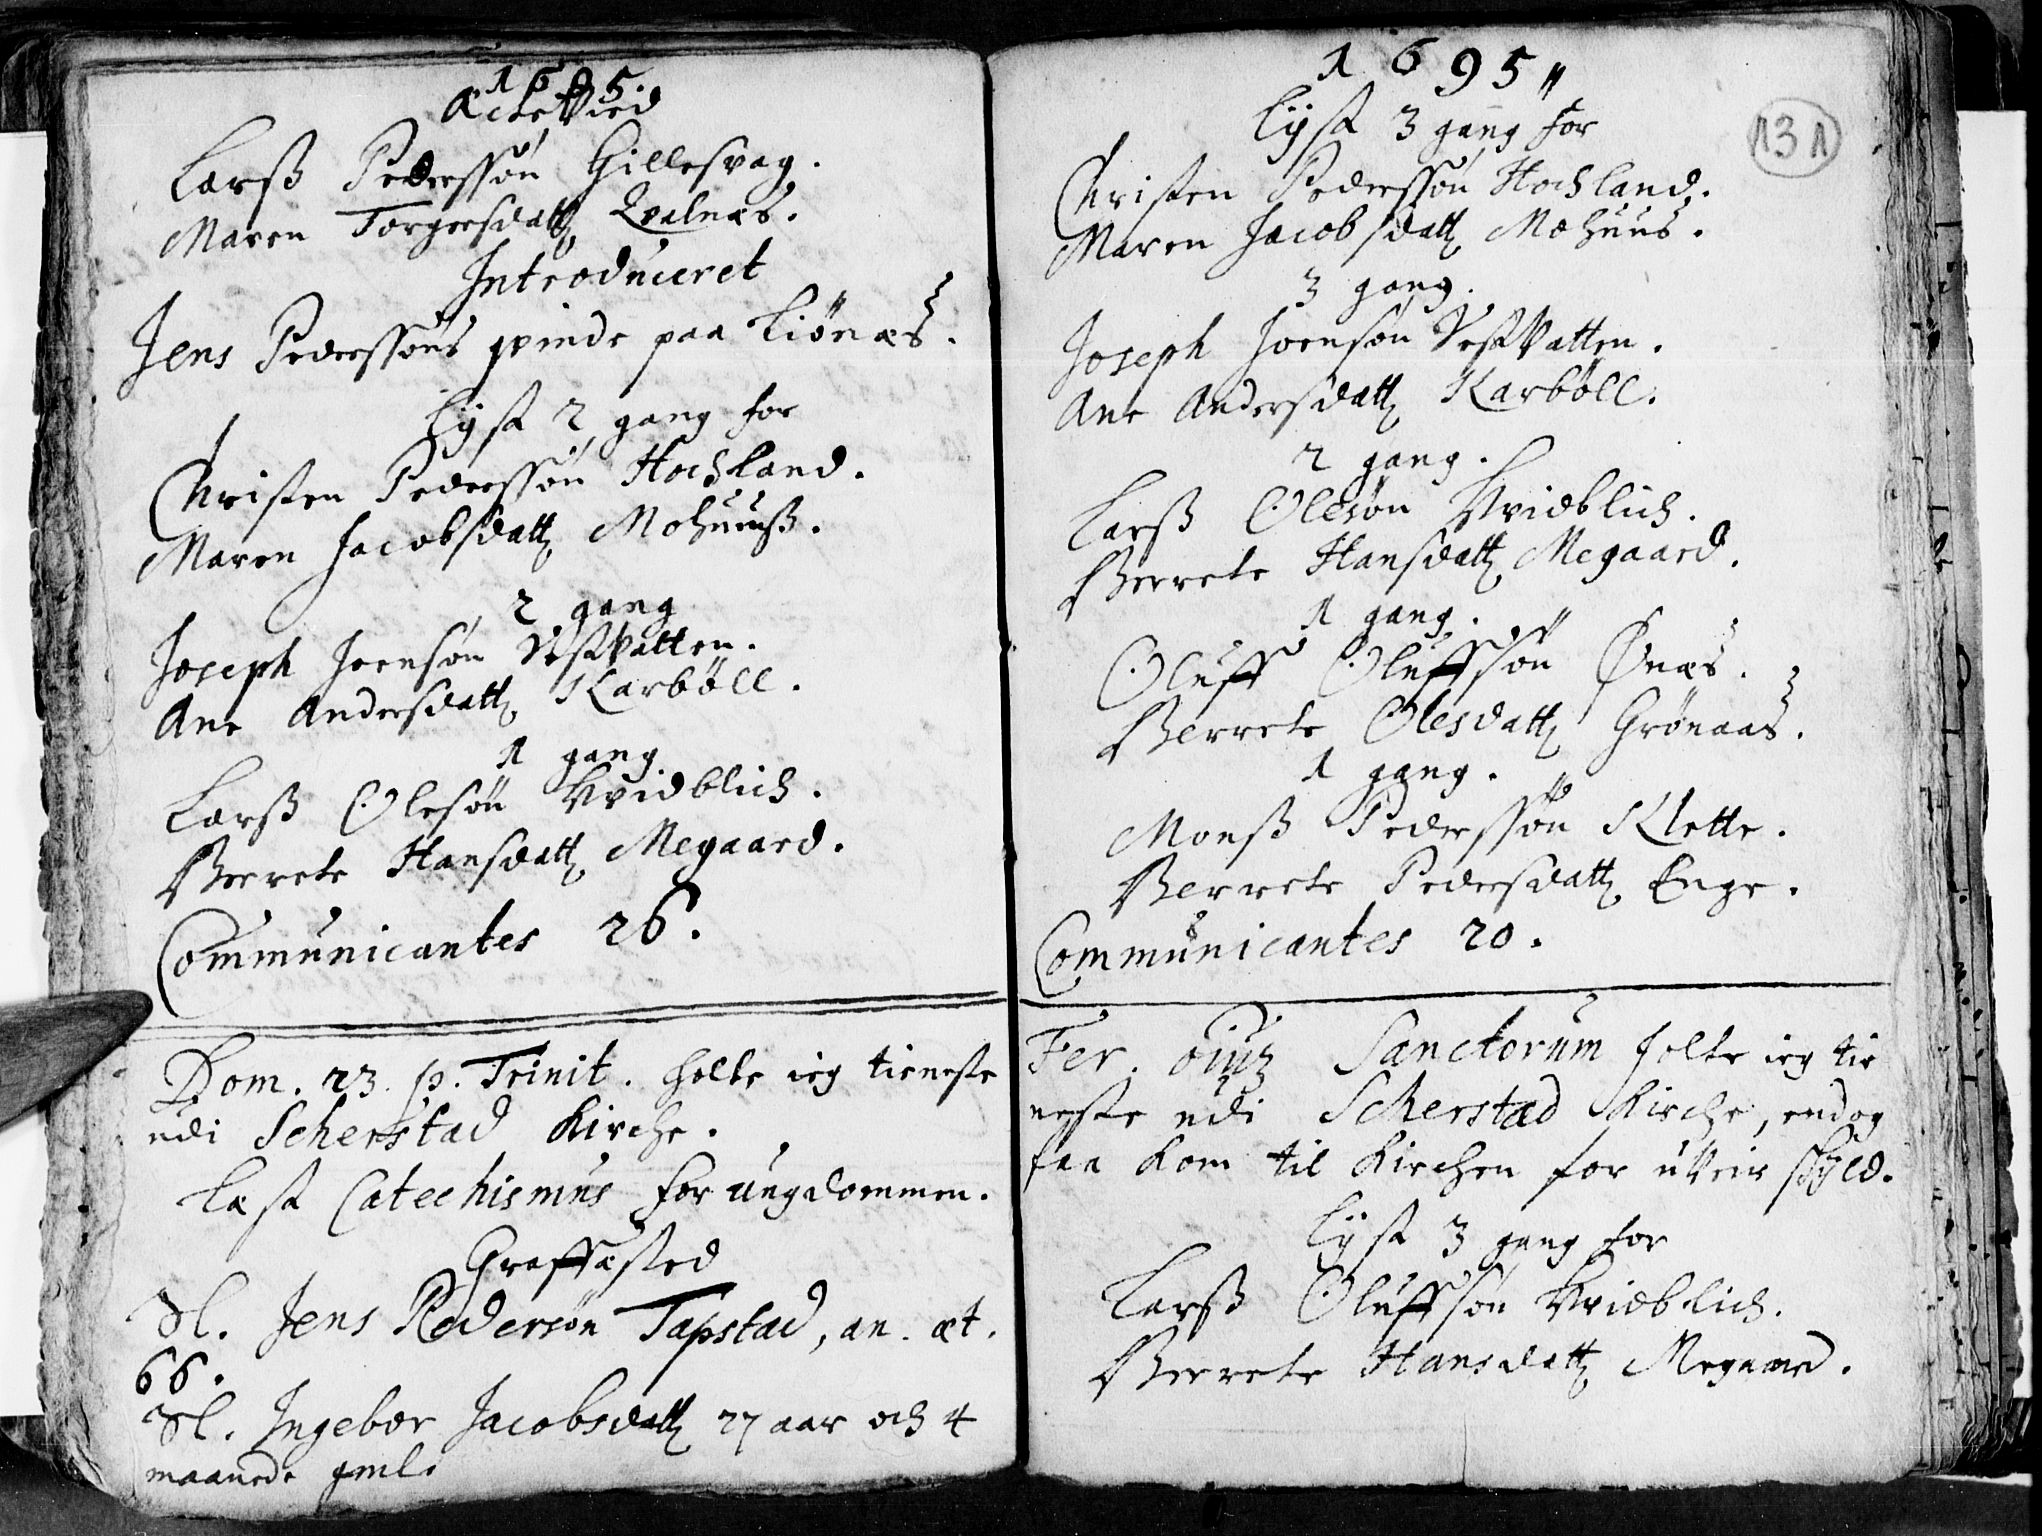 1695
Acte Vied
Larß Pederssøn Gillesvag.
Maren Torgersdatt Qvalnæs.
Introduceret
Jens Pederssøns qvinde paa Liønæs.
Lyst 2 gang for
Christen Pederssøn Hochland.
Maren Jacobsdatt Mohuuß.
2 gang
Joseph Joensøn Vestvatten.
Ane Andersdatt Karbøll.
1 gang
Larß Olesøn Hvidblich.
Berrete Hansdatt Megaard.
Communicantes 26.
Dom. 23. p. Trinit. holte ieg tieneste
udi Scherstad Kirche.
Læst Catechismus for ungdommen.
Graffæsted
Sl. Jens Pedersøn Tapstad, an. æt.
66.
Sl. Ingebor Jacobsdatt 27 aar och 4
maanede gml.
1695
131
Lyst 3 gang for
Christen Pederssøn Hochland.
Maren Jacobsdatt Mohuus.
3 gang.
Joseph Joensøn Vestvatten.
Ane Andersdatt Karbøll.
2 gang.
Larß Olesøn Hvidblich.
Berrete Hansdatt Megaard.
1 gang.
Oluff Oluffsøn Ønæs.
Berrete Olesdatt Grønaas.
1 gang.
Monß Pederssøn Klette.
Berrete Pedersdatt Enge.
Communicantes 20.
Fer. oium Sanctorum holte ieg tie
neste udi Scherstad Kirche, endog
faa kom til Kirchen for uveir skyld.
Lyst 3 gang for
Larß Oluffsøn Hvidblich.
Berrete Hansdatt Megaard.